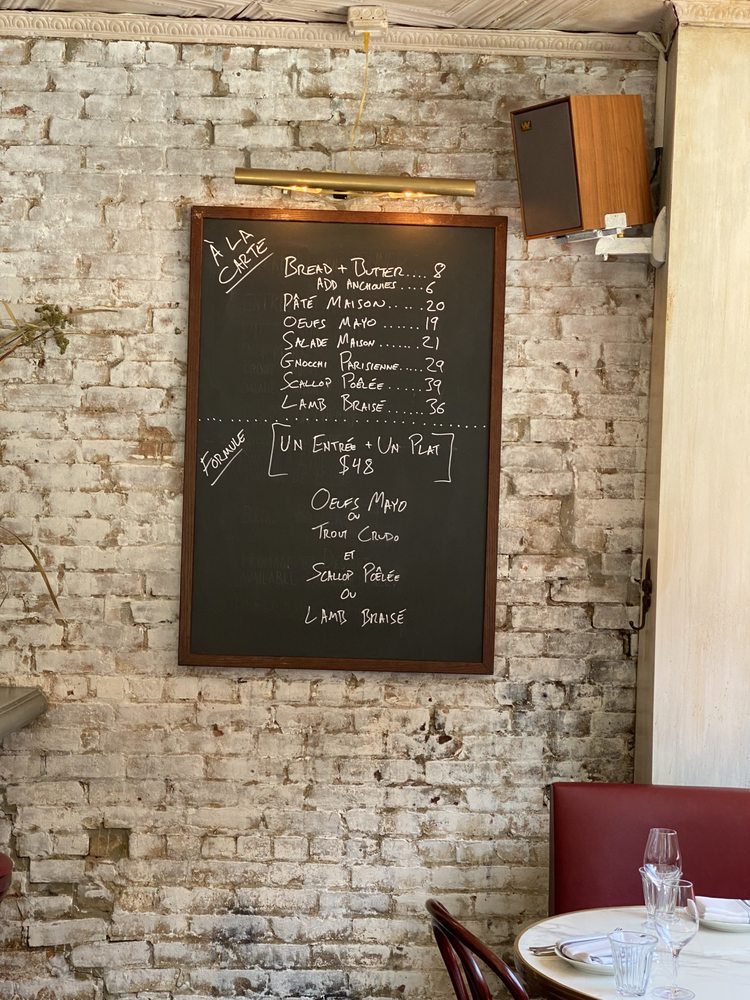 À LA
CARTE
BREAD + BUTTER.... 8
ADD ANCHOVIES....6
PÂTÉ MAISON......20
OEUFS MAYO ......19
SALADE MAISON......21
GNOCCHI PARISIENNE....29
SCALLOP POÊLÉE.....39
LAMB BRAISÉ......36
FORMULE
[UN ENTRÉE + UN PLAT
$48]
OEUFS MAYO
OU
TROUT CRUDO
ET
SCALLOP POÊLÉE
OU
LAMB BRAISÉ
W